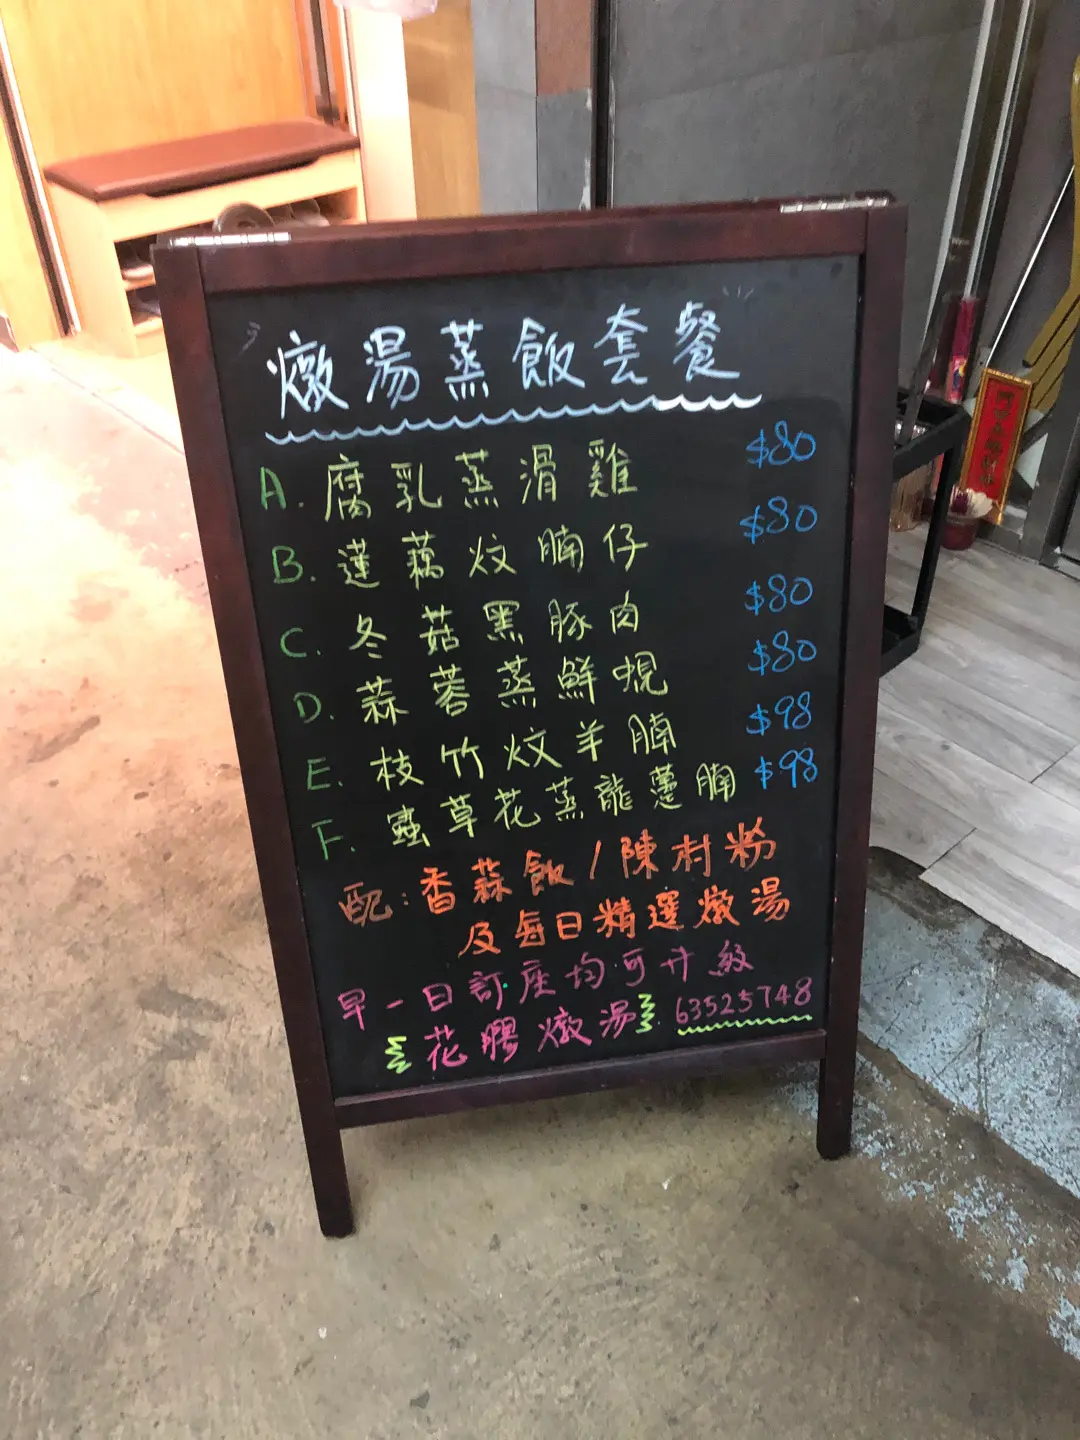 燉湯蒸飯套餐
A. 腐乳蒸滑雞 $80
B. 蓮藕炆腩仔 $80
C. 冬菇黑豚肉 $80
D. 蒜蓉蒸鮮蜆 $80
E. 枝竹炆羊腩 $98
F. 蟲草花蒸龍躉腩 $98
配:香蒜飯/陳村粉
及每日精選燉湯
早一日訂座均可升級
花膠燉湯 63525748